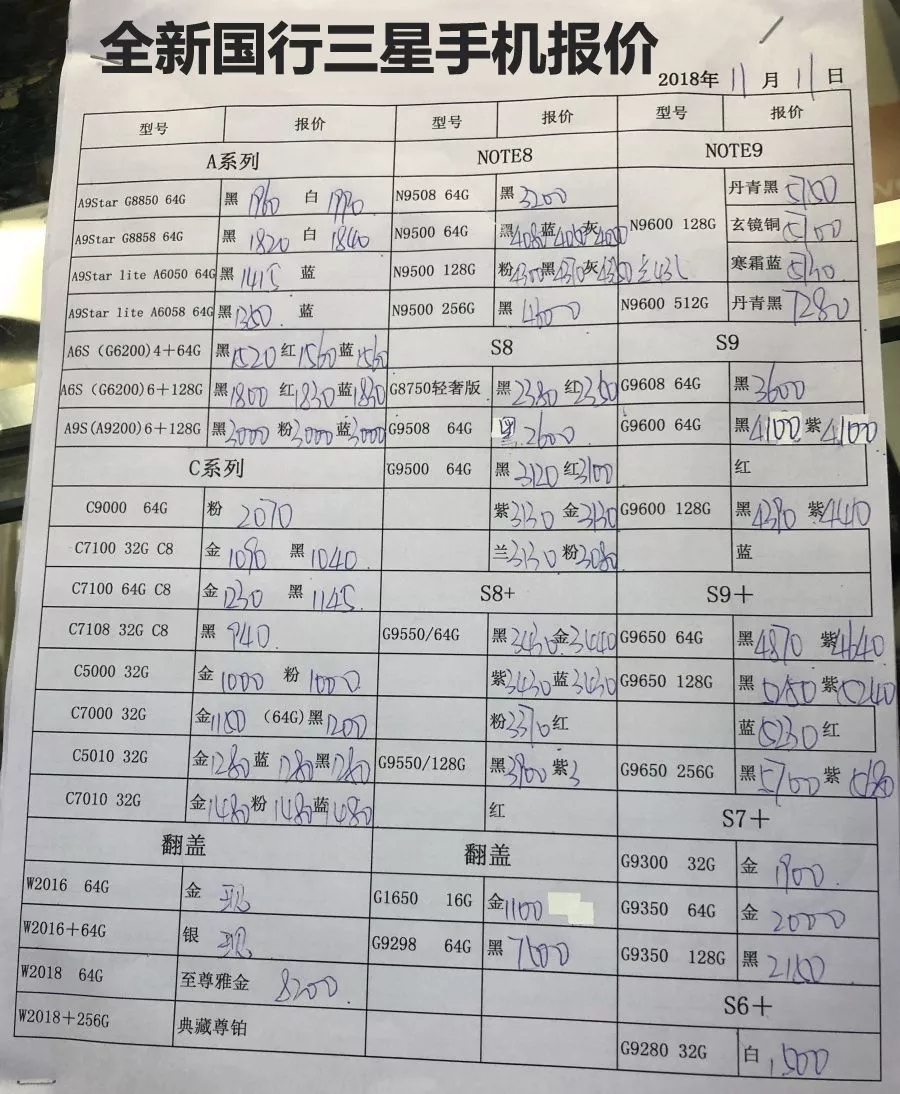 全新国行三星手机报价
2018年 11 月 11 日
型号 报价 型号 报价 型号 报价
A系列 NOTE8 NOTE9
A9Star G8850 64G 黑 1960 白 1990 N9508 64G 黑 3200 N9600 128G 丹青黑
A9Star G8858 64G 黑 1820 白 1840 N9500 64G 黑 4080 蓝 灰 玄镜铜 5100
A9Star lite A6050 64G 黑 1415 蓝 N9500 128G 粉 4300 黑 灰 寒霜蓝 5130
A9Star lite A6058 64G 黑 1350 蓝 N9500 256G 黑 4600 N9600 512G 丹青黑 7280
A6S (G6200)4+64G 黑 1520 红 1560 蓝 1560 S8 S9
A6S (G6200)6+128G 黑 1800 红 1830 蓝 1830 G8750轻奢版 黑 2380 红 2350 G9608 64G 黑 3600
A9S(A9200)6+128G 黑 3000 粉 3000 蓝 3000 G9508 64G 2600 G9600 64G 黑 4100 紫 4100
C系列 G9500 64G 黑 3120 红 3100 红
C9000 64G 粉 2070 紫 3130 金 3130 G9600 128G 黑 4390 紫 4440
C7100 32G C8 金 1090 黑 1040 兰 3130 粉 3080 蓝
C7100 64G C8 金 1230 黑 1145 S8+ S9+
C7108 32G C8 黑 940 G9550/64G 黑 3430 金 3440 G9650 64G 黑 4870 紫 4640
C5000 32G 金 1000 粉 1000 紫 3430 蓝 3430 G9650 128G 黑 紫 5240
C7000 32G 金 (64G) 黑 1200 粉 3370 红 蓝 5230 红
C5010 32G 金 1280 蓝 1280 黑 1280 G9550/128G 黑 3900 紫 3 G9650 256G 黑 5700 紫 5680
C7010 32G 金 1480 粉 1480 蓝 1480 红 S7+
翻盖 翻盖 G9300 32G 金 1900
W2016 64G 金 现 G1650 16G 金 1100 G9350 64G 金 2000
W2016+64G 银 现 G9298 64G 黑 7600 G9350 128G 黑
W2018 64G 至尊雅金 8200 S6+
W2018+256G 典藏尊铂 G9280 32G 白 1500